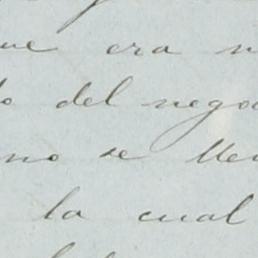 que era
del nego
no se lle
la cual